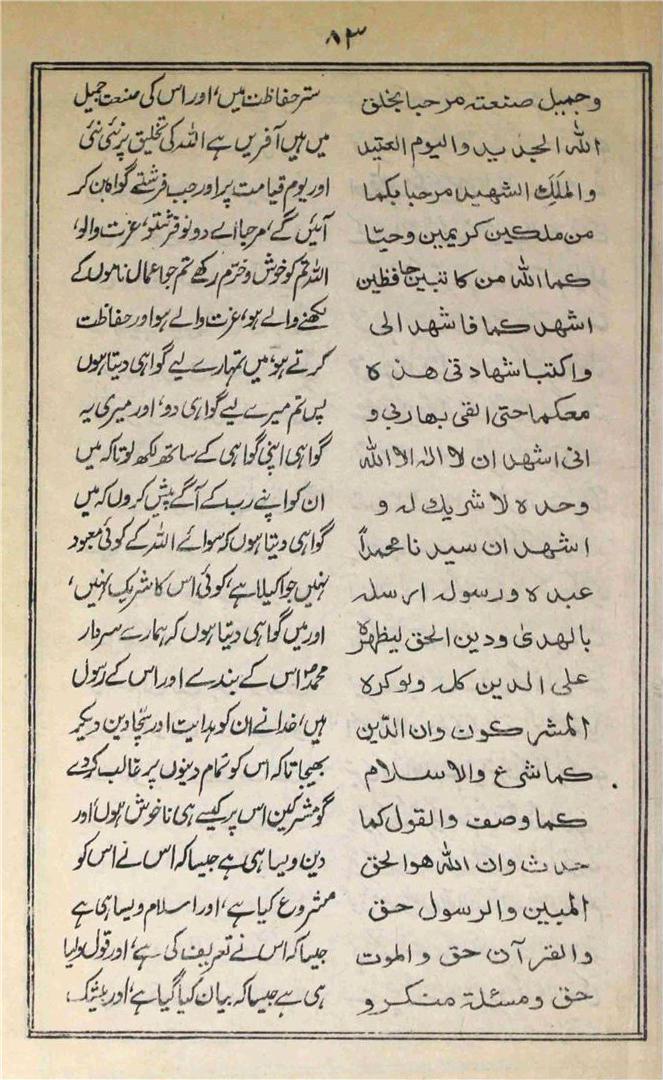 ۸۳
وجميل صنعته مرحبا بخلق
الله الجديد واليوم العتيد
والملك الشهيد مرحبا بكما
من ملكين كريمين وحيّا
كما الله من كاتبين حافظين
اشهد كما فاشهد الى
واكتبا شهادتى هذه
معكما حتى القى بها ربي و
انى اشهد ان لا اله الا الله
وحده لا شريك له و
اشهد ان سيدنا محمداً
عبده ورسوله ارسله
بالهدى ودين الحق ليظهره
على الدين كله ولو كره
المشركون وان الدّين
كما شرع والاسلام
كما وصف والقول كما
حدث وان الله هو الحق
المبين والرسول حق
والقرآن حق والموت
حق ومسئلة منكر و
ستر حفاظت میں، اور اس کی صنعت جمیل
میں ہیں آفریں ہے اللہ کی تخلیق پر نئی نئی
اور یوم قیامت پر اور جب فرشتے گواہ بن کر
آئیں گے، مرحبا اے دونو فرشتو، عزت والو،
اللہ تم کو خوش و خرّم رکھے تم جو اعمال ناموں کے
لکھنے والے ہو، عزت والے ہو اور حفاظت
کرتے ہو، میں تمہارے لیے گواہی دیتا ہوں
پس تم میرے لیے گواہی دو، اور میری یہ
گواہی اپنی گواہی کے ساتھ لکھ لو تاکہ میں
ان کو اپنے رب کے آگے پیش کروں کہ میں
گواہی دیتا ہوں کہ سوائے اللہ کے کوئی معبود
نہیں جو اکیلا ہے، کوئی اس کا شریک نہیں،
اور میں گواہی دیتا ہوں کہ ہمارے سردار
محمدؐ اس کے بندے اور اس کے رسول
ہیں، خدا نے ان کو ہدایت اور سچا دین دیکر
بھیجا تاکہ اس کو تمام دینوں پر غالب کردے
گو مشرکین اس پر کیسے ہی ناخوش ہوں، اور
دین ویسا ہی ہے جیسا کہ اس نے اس کو
مشروع کیا ہے، اور اسلام ویسا ہی ہے
جیسا کہ اس نے تعریف کی ہے، اور قول ویسا
ہی ہے جیسا کہ بیان کیا گیا ہے، اور بیشک